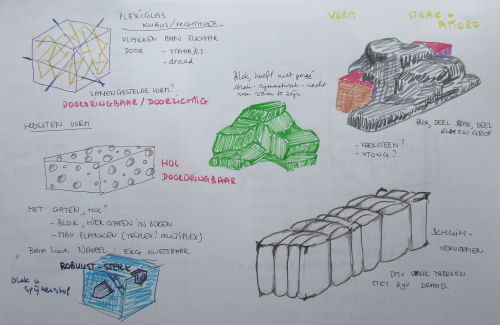 PLEXIGLAS
KUBUS / RECHTHOEK
VLAKKEN AAN ELKAAR
DOOR - STAAFJES
- draad
SAMENGESTELDE VORM?
DOORDRINGBAAR / DOORZICHTIG
HOUTEN VORM
HOL
DOORDRINGBAAR
MET GATEN, HOL?
- BLOK, HIER GATEN IN BOREN
- MBV PLANKEN (TRIPLEX? MULTIPLEX)
Balsa hout. NADEEL: ERG KWETSBAAR.
ROBUUST - STERK
blok v
Blok, hoeft niet perse
strak - symmetrisch - recht
van vorm te zijn
VORM
STRAK +
AMORF
BLOK, DEEL STRAK, DEEL
RUW EN GROF
- SPEKSTEEN?
- YTONG?
SCHUIM-
VERVORMEN
DMV STRAK TREKKEN
MET BIJV DRAAD.